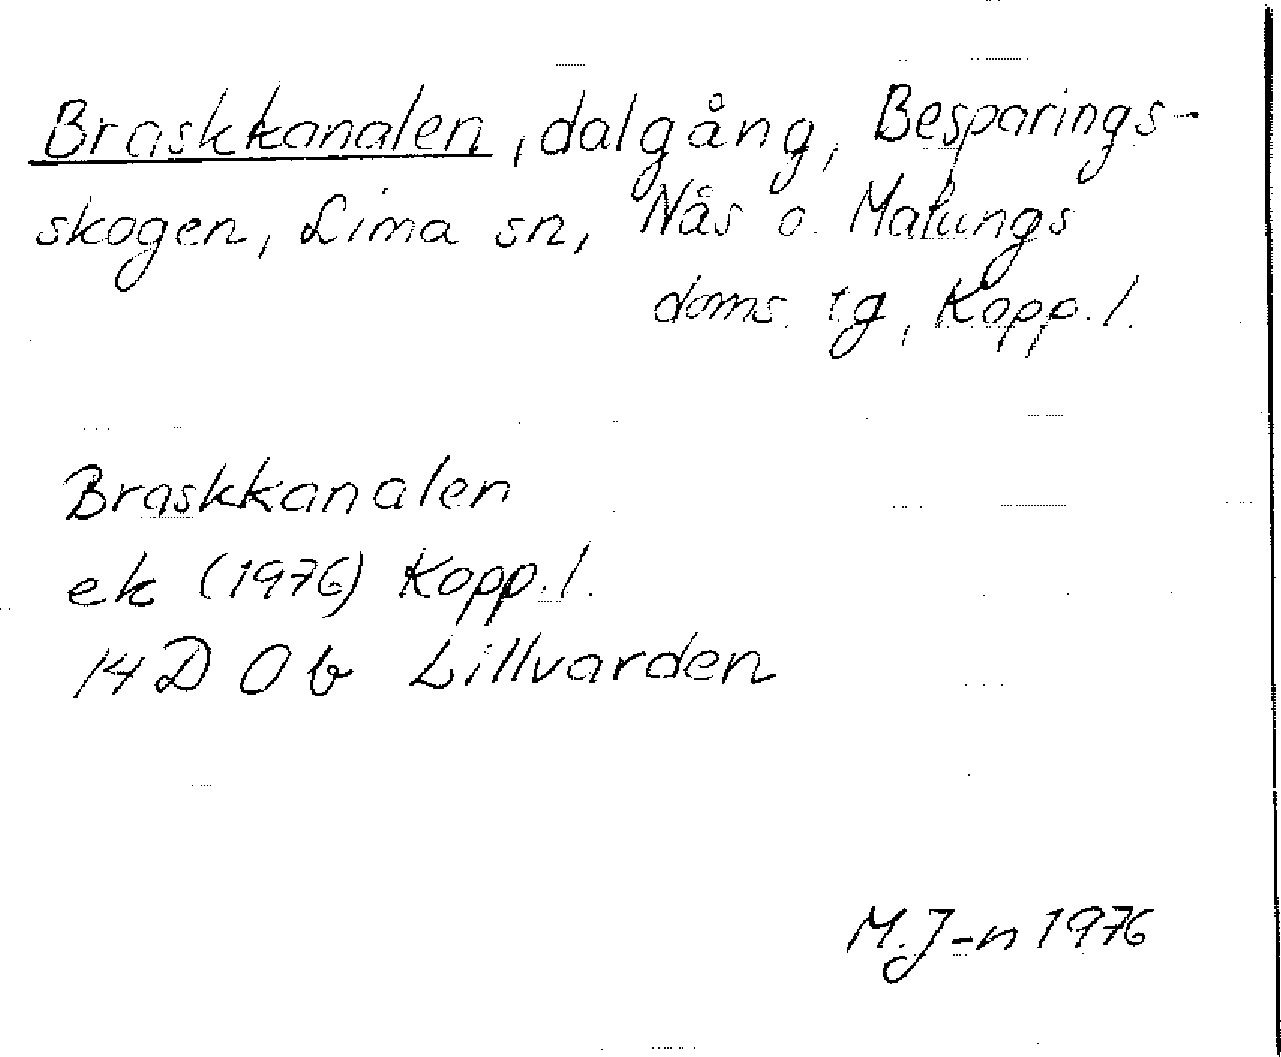 Braskkanalen, dalgång, Besparings-
skogen, Lima sn, Nås o. Malungs
doms. tg, Kopp. l.
Braskkanalen
ek (1976) Kopp. l.
14 D 0 b Lillvarden
M. J-n 1976